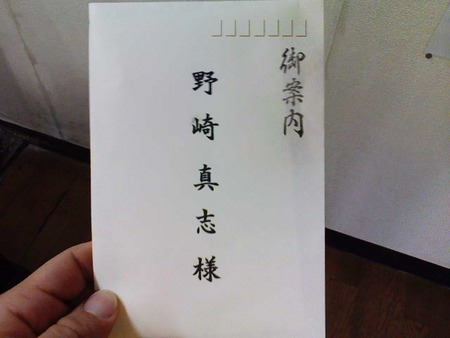 御案内
野崎真志様